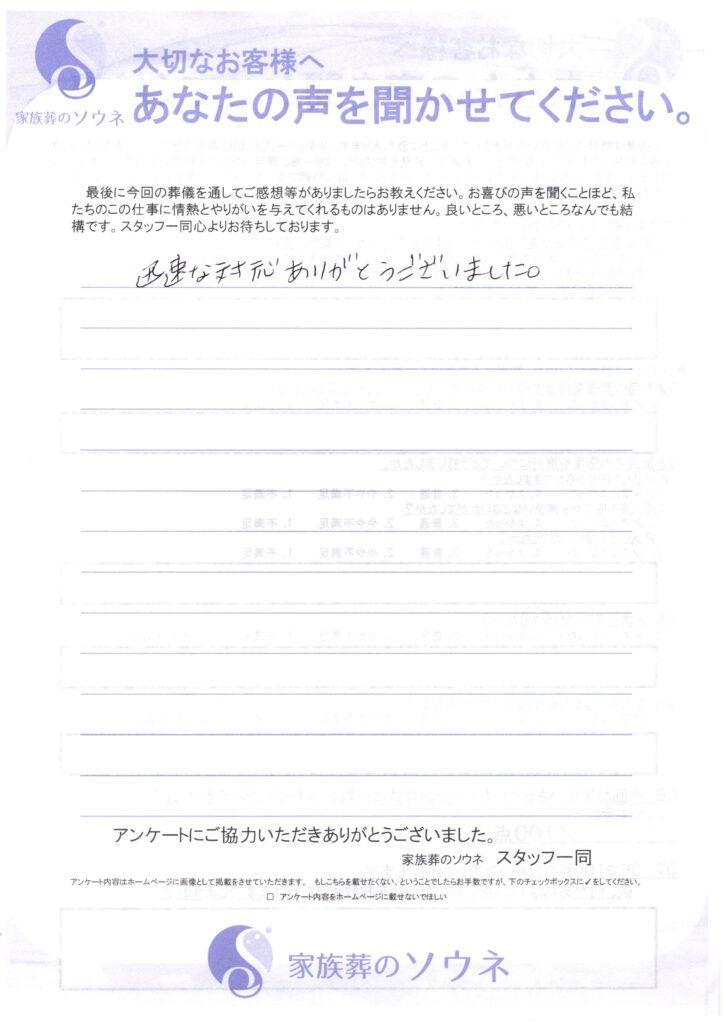 家族葬のソウネ
大切なお客様へ
あなたの声を聞かせてください。
最後に今回の葬儀を通してご感想等がありましたらお教えください。お喜びの声を聞くことほど、私
たちのこの仕事に情熱とやりがいを与えてくれるものはありません。良いところ、悪いところなんでも結
構です。スタッフ一同心よりお待ちしております。
迅速な対応ありがとうございました。
アンケートにご協力いただきありがとうございました。
家族葬のソウネ スタッフ一同
アンケート内容はホームページに画像として掲載をさせていただきます。 もしこちらを載せたくない、ということでしたらお手数ですが、下のチェックボックスに✓をしてください。
□ アンケート内容をホームページに載せないでほしい
家族葬のソウネ